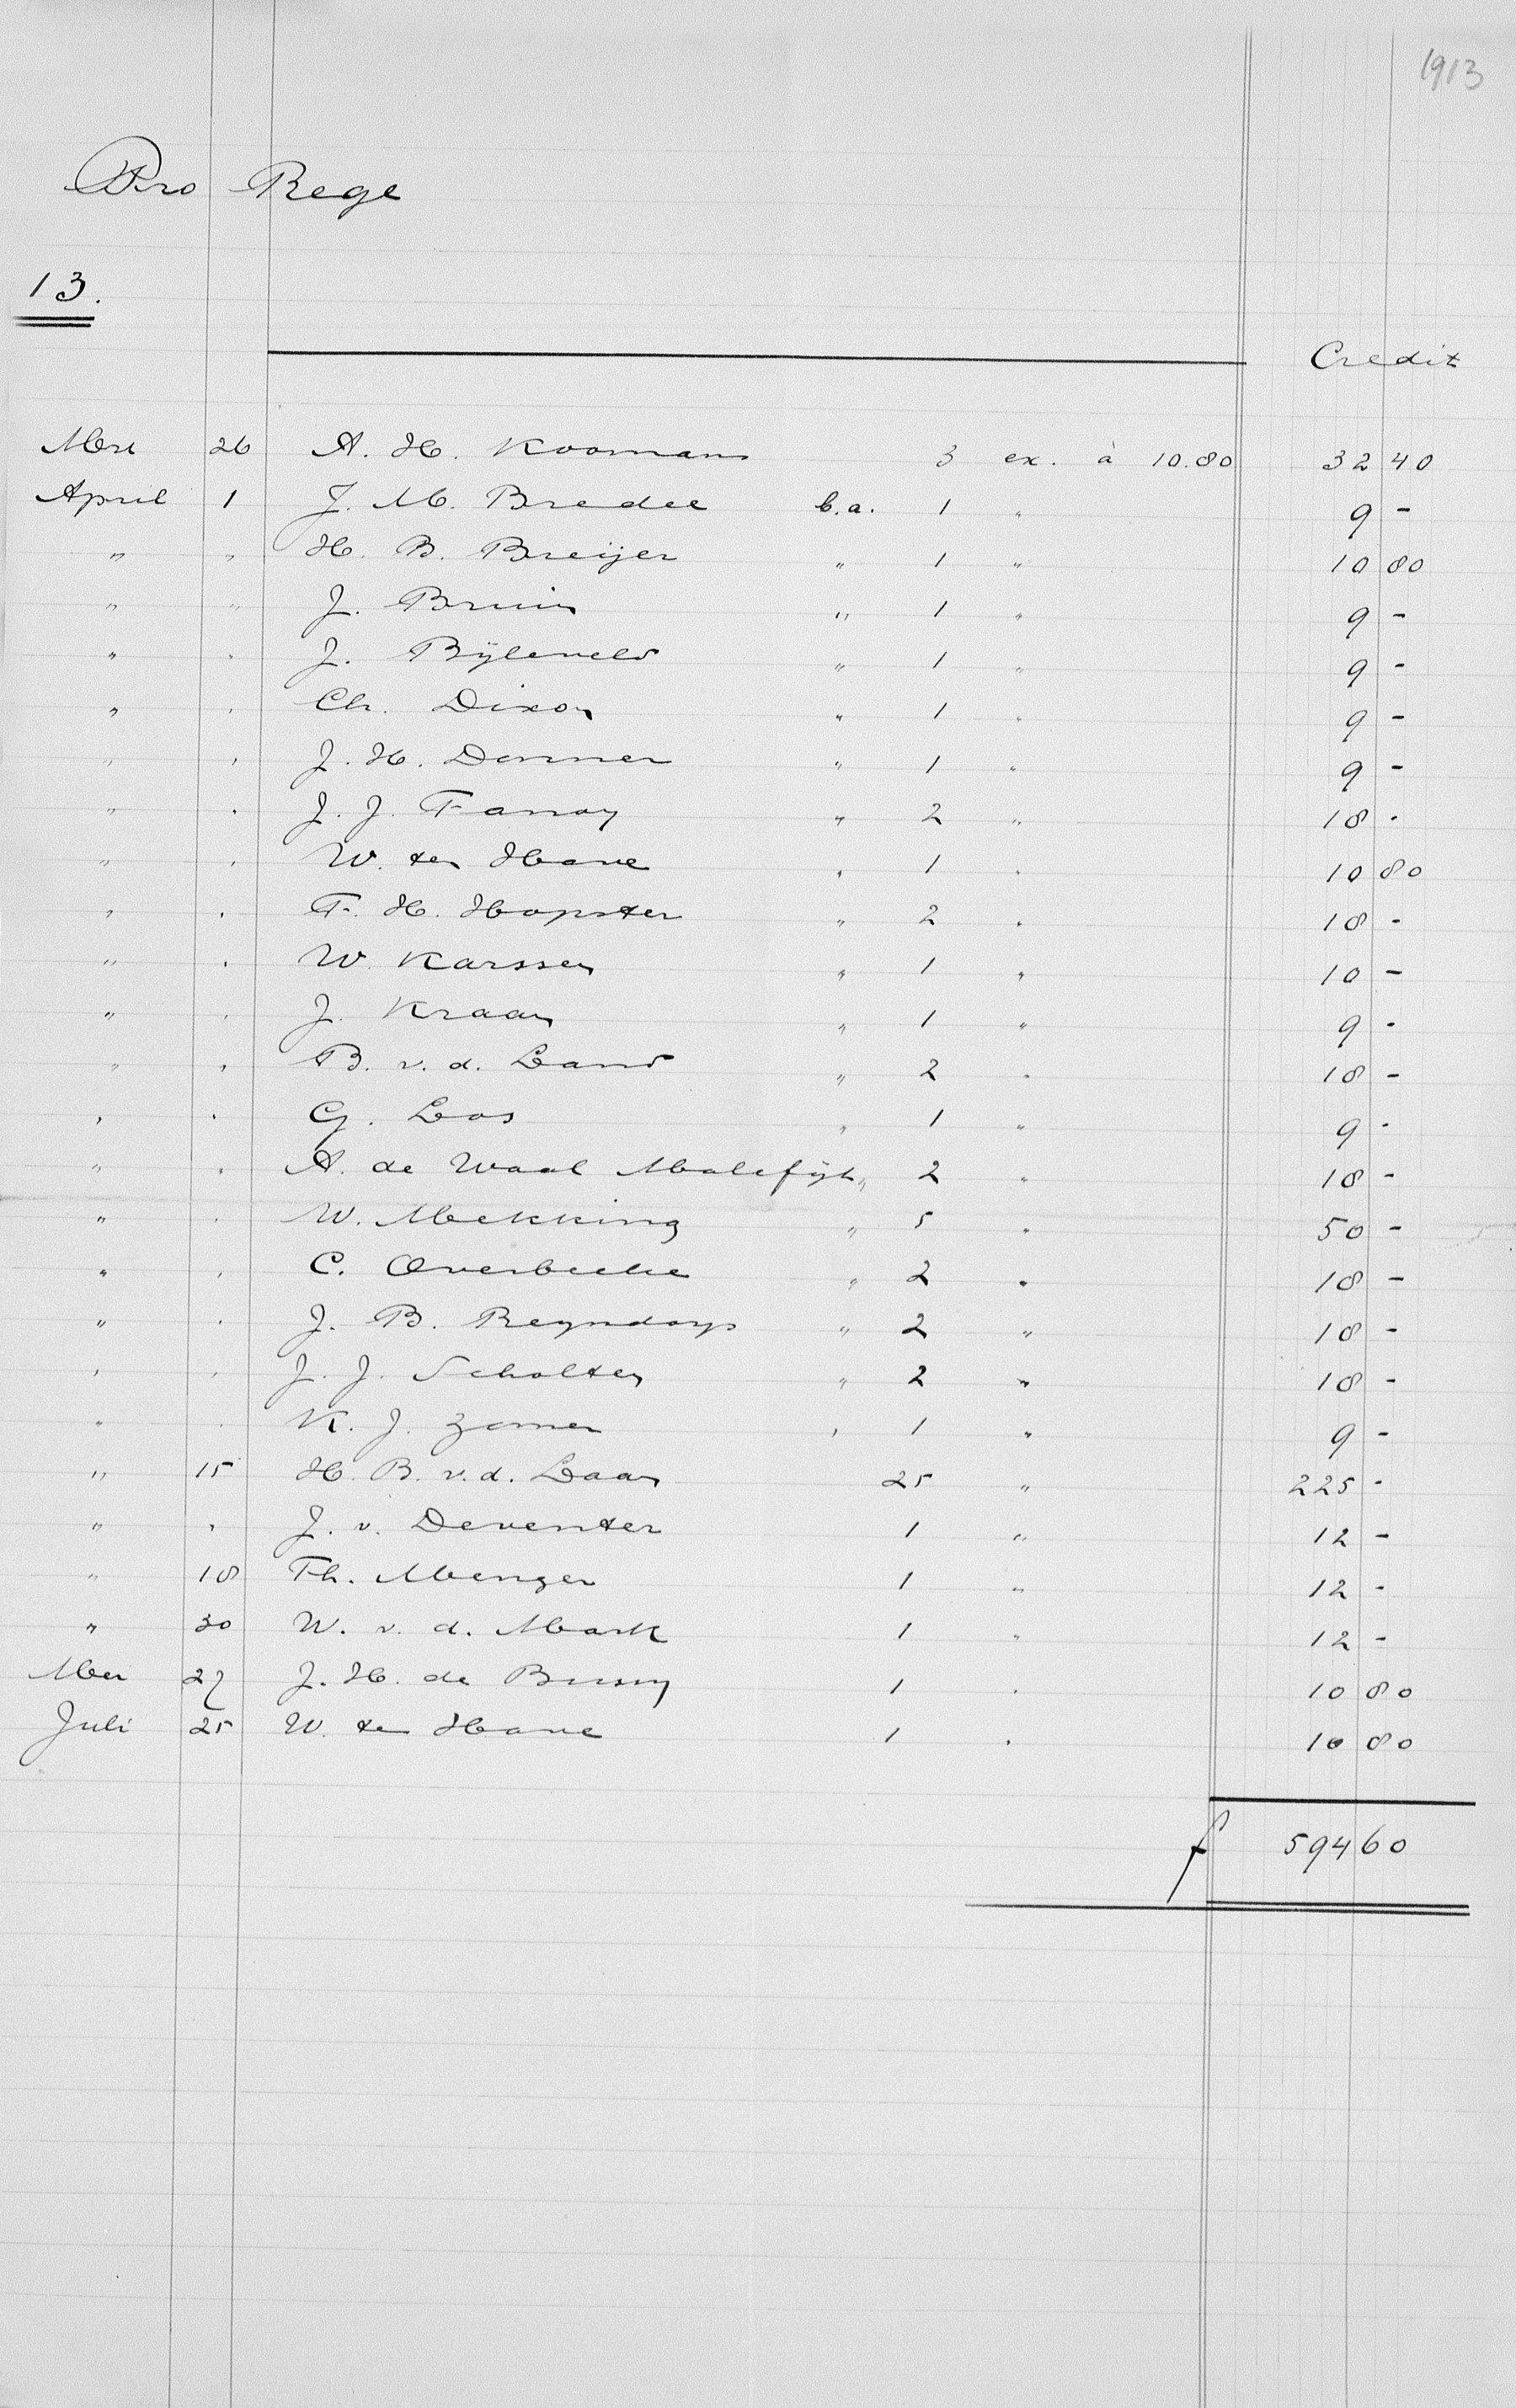 1913
Pro Rege
13.
Credit
Mrt 26 A. H. Koomans 3 ex. à 10.80 32 40
April 1 J. M. Bredée b.a. 1 " 9 -
" " H. B. Breijer " 1 " 10 80
" " J. Bruin " 1 " 9 -
" " J. Bijleveld " 1 " 9 -
" " Ch. Dixon " 1 " 9 -
" " J. H. Donner " 1 " 9 -
" " J. J. Fanoy " 2 " 18 -
" " W. ten Have " 1 " 10 80
" " F. H. Hopster " 2 " 18 -
" " W. Karssen " 1 " 10 -
" " J. Kraan " 1 " 9 -
" " B. v. d. Land " 2 " 18 -
" " G. Loos " 1 " 9 -
" " A. de Waal Malefijt " 2 " 18 -
" " W. Mekking " 5 " 50 -
" " C. Overbeeke " 2 " 18 -
" " J. B. Reyndorp " 2 " 18 -
" " J. J. Scholten " 2 " 18 -
" " K. J. Zomer " 1 " 9 -
" 15 H. B. v. d. Laan 25 " 225 -
" " J. v. Deventer 1 " 12 -
" 18 Th. Menger 1 " 12 -
" 30 W. v. d. Mark 1 " 12 -
Mei 27 J. H. de Bussy 1 " 10 80
Juli 25 W. ten Have 1 " 10 80
f 594 60